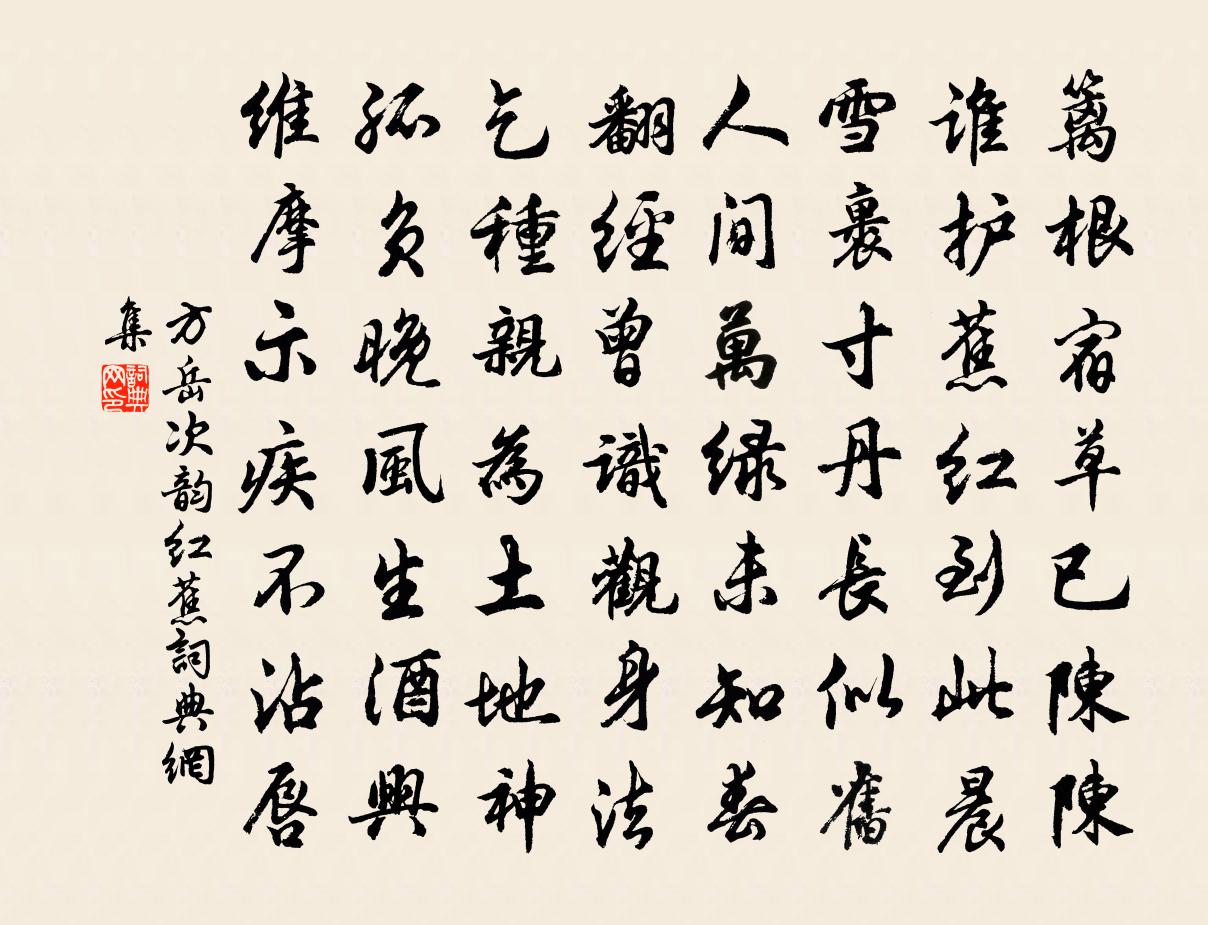 籬根宿草已陳陳
谁护蕉红到此晨
雪裹寸丹長似舊
人间萬緑未知春
翻經曾識觀身法
乞種親為土地神
孤負晚風生酒興
维摩示疾不沾唇
方岳次韵红蕉詞典網
集
詞典网印